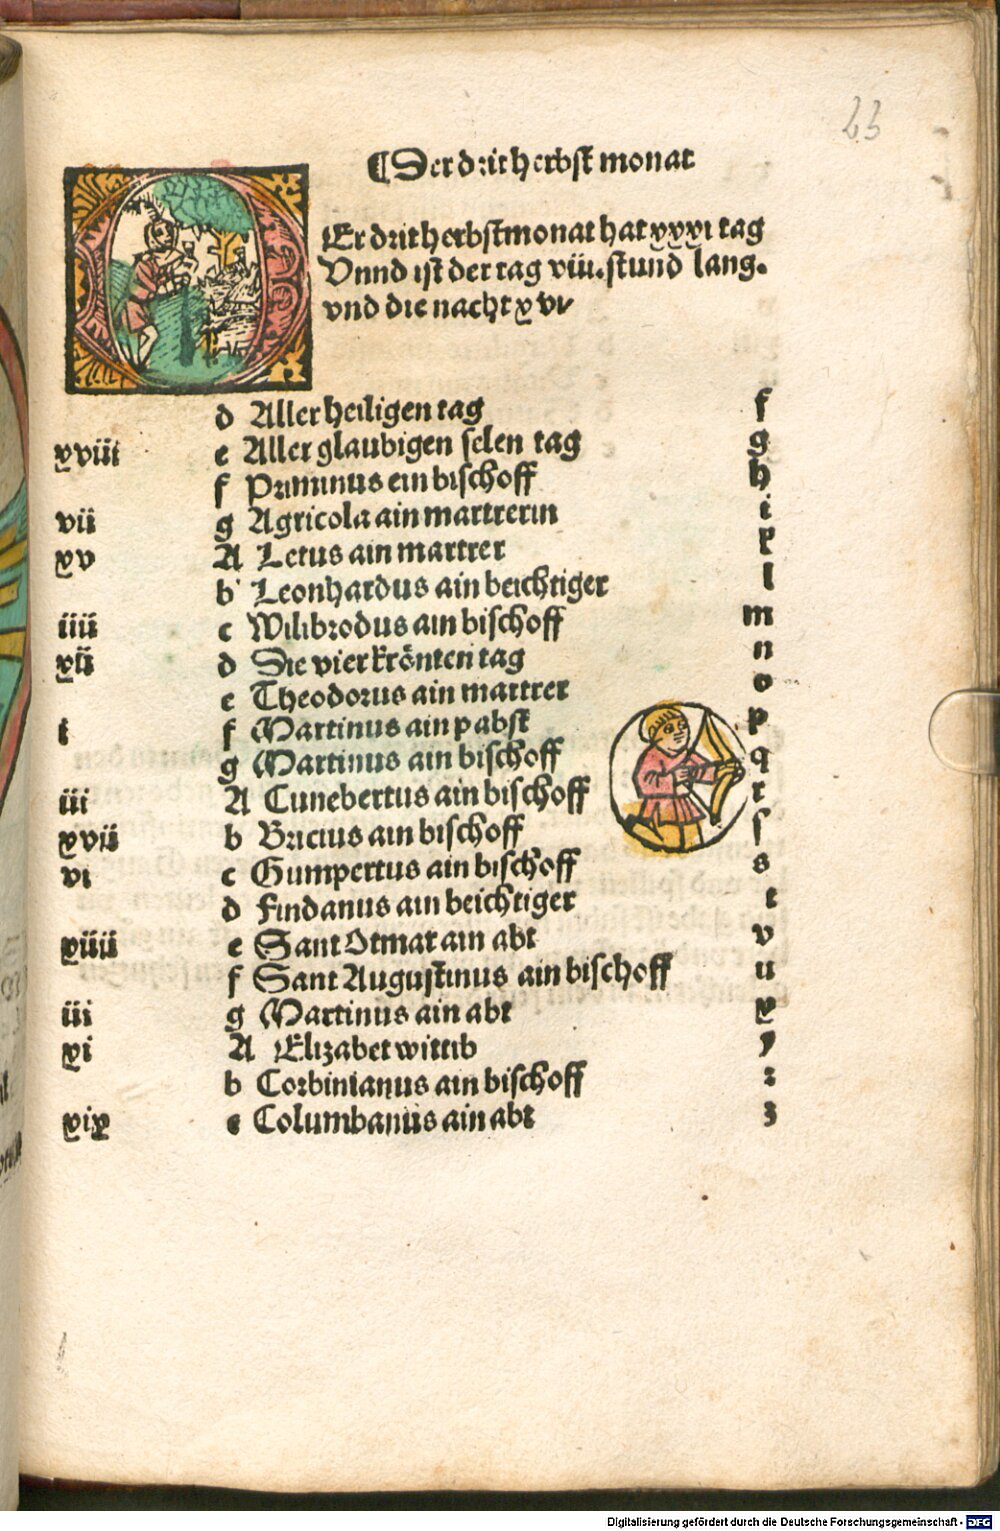 23
¶ Der drit herbſt monat
Er drit herbſtmonat hat xxxi tag
Vnnd iſt der tag viii. ſtund lang.
vnd die nacht xvi
d Aller heiligen tag f
xviii e Aller glaubigen ſelen tag g
f Priminus ein biſchoff h
vii g Agricola ain martrerin i
xv A Letus ain martrer k
b Leonhardus ain beichtiger l
iiii c Wilibrodus ain biſchoff m
xii d Die vier krönten tag n
e Theodorus ain martrer o
i f Martinus ain pabſt p
g Martinus ain biſchoff q
iii A Cunebertus ain biſchoff r
xvii b Bricius ain biſchoff ſ
vi c Gumpertus ain biſchoff s
d Findanus ain beichtiger t
xiiii e Sant Otmar ain abt v
f Sant Auguſtinus ain biſchoff u
iii g Martinus ain abt x
xi A Elizabet wittib y
b Corbinianus ain biſchoff z
xix c Columbanus ain abt 3
Digitalisierung gefördert durch die Deutsche Forschungsgemeinschaft - DFG